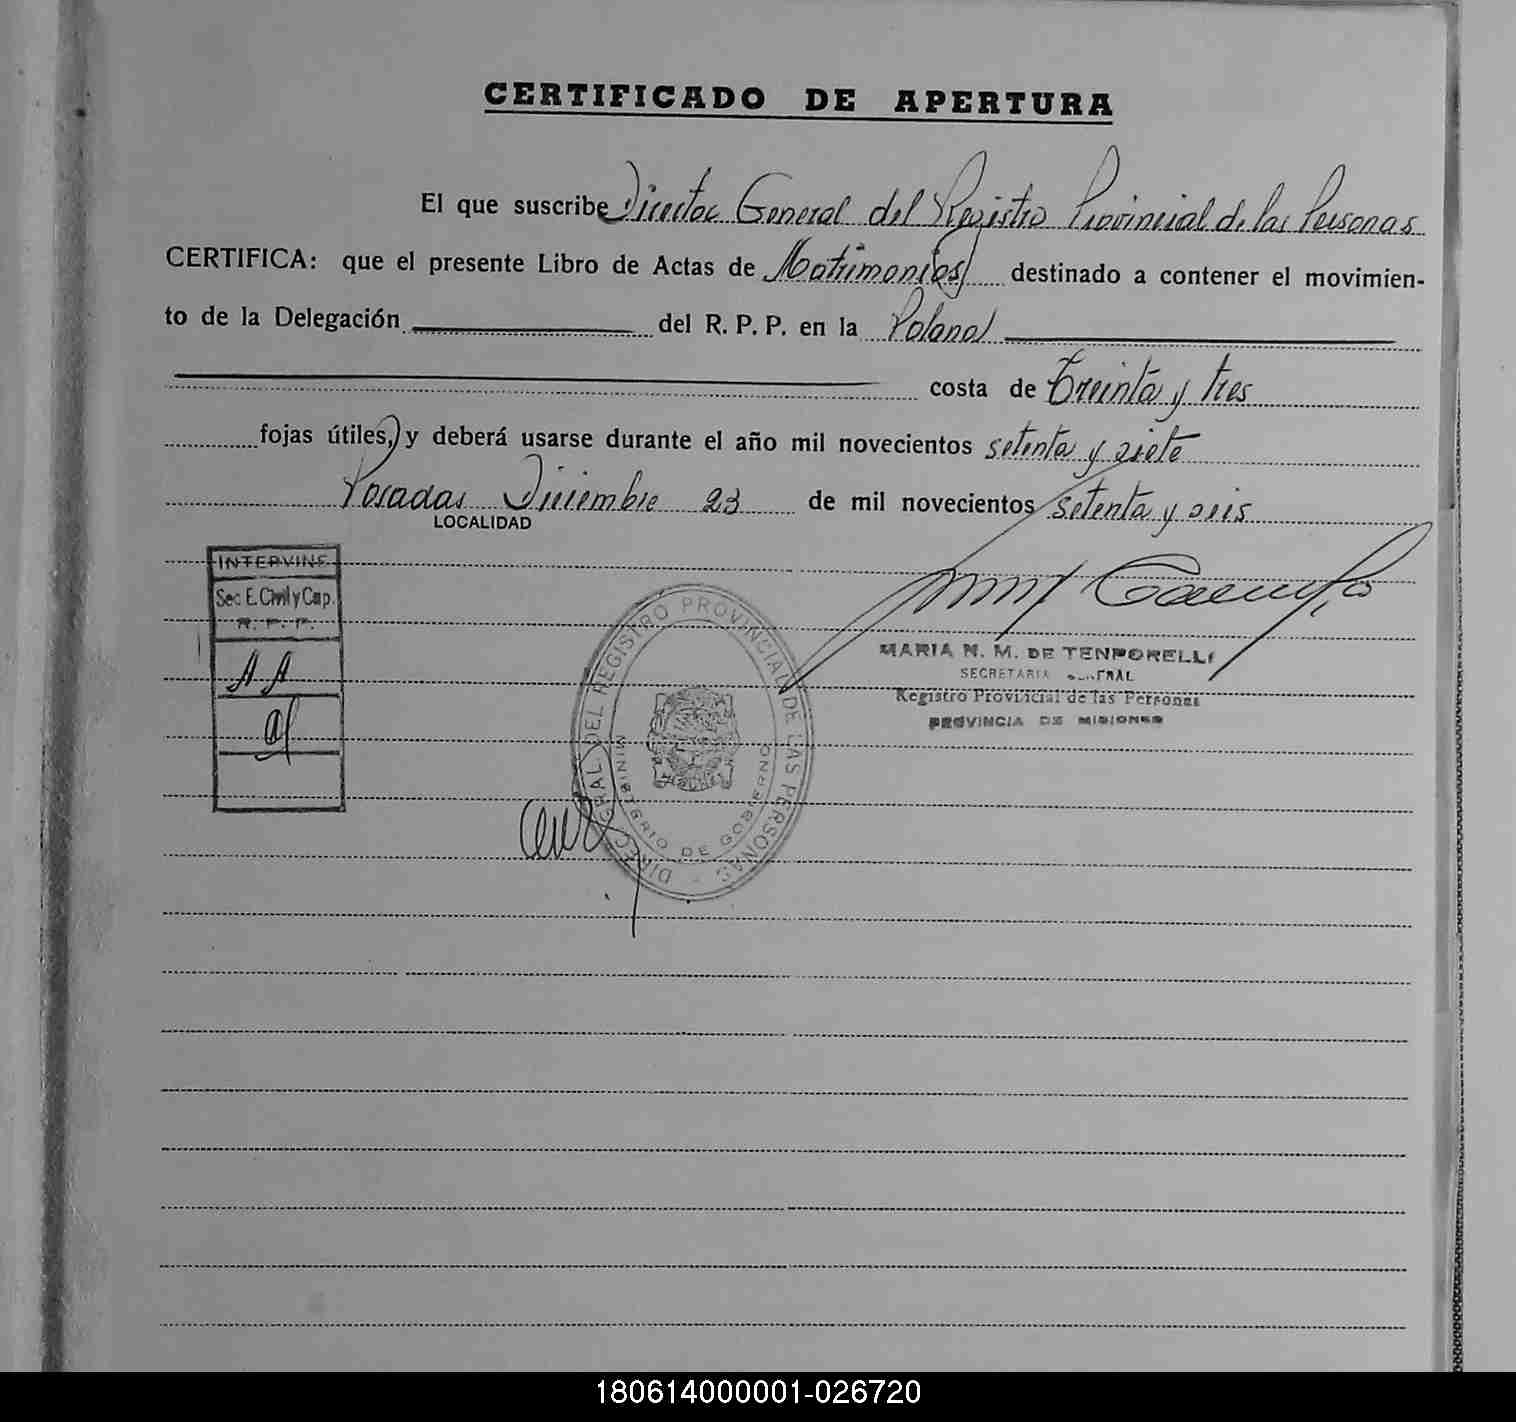 CERTIFICADO DE APERTURA
El que suscribe Director General del Registro Provincial de las Personas
CERTIFICA: que el presente Libro de Actas de Matrimonios destinado a contener el movimien-
to de la Delegación del R. P. P. en la Polana
costa de Treinta y tres
fojas útiles, y deberá usarse durante el año mil novecientos setenta y siete
Posadas Diciembre 23 de mil novecientos setenta y seis
LOCALIDAD
INTERVINE
Sec E. Civil y Cap.
R. P. P.
MARIA N. M. DE TENPORELLI
SECRETARIA GENERAL
Registro Provincial de las Personas
PROVINCIA DE MISIONES
DIREC. GRAL. DEL REGISTRO PROVINCIAL DE LAS PERSONAS
MINISTERIO DE GOBIERNO
180614000001-026720